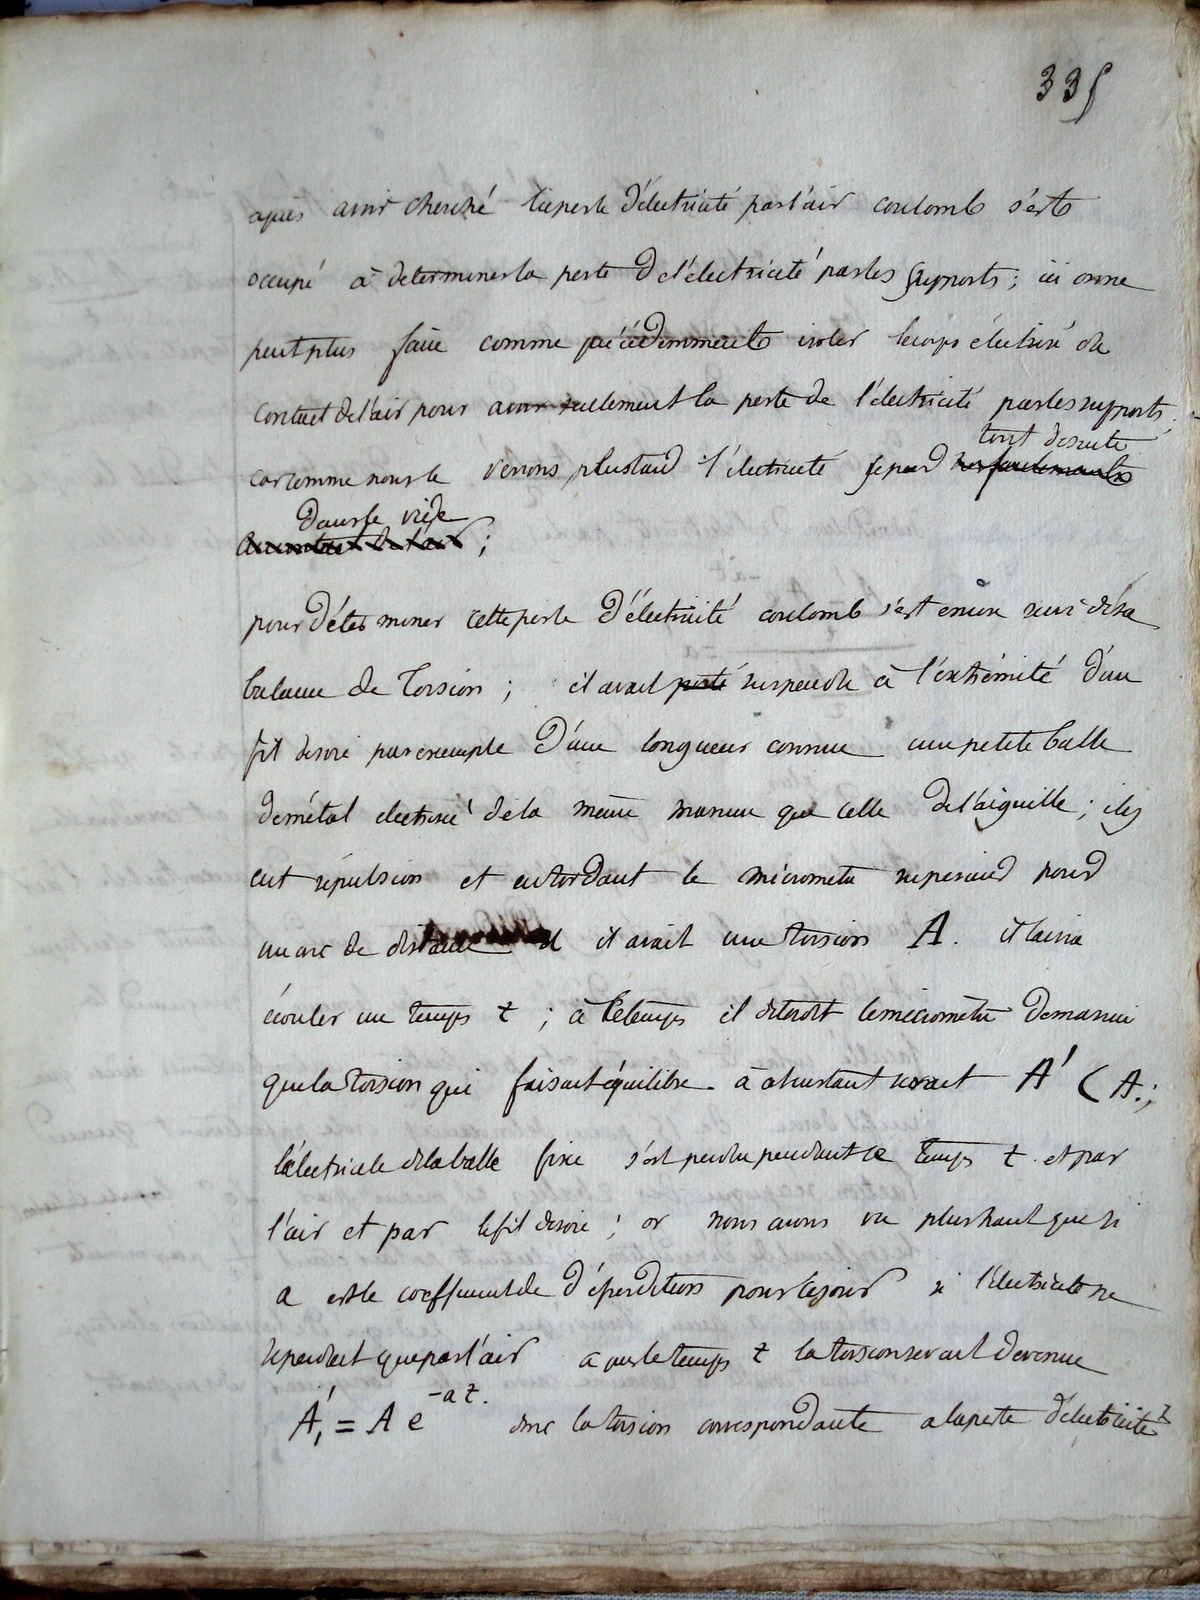 335
après avoir cherché la perte d'électricité par l'air coulomb s'est
occupé à determiner la perte de l'électricité par les supports ; ici on ne
peut plus faire comme précédemment isoler le corps électrisé du
contact de l'air pour avoir seulement la perte de l'électricité par les supports
tout de suite
car comme nous le verrons plus tard l'électricité se perd
dans le vide
;
pour déterminer cette perte d'électricité coulomb s'est encore servi de sa
balance de torsion ; il avait porté suspendu à l'extrémité d'un
fil de soie par exemple d'une longueur connue une petite balle
de métal electrisé de la même maniere que celle de l'aiguille ; il y
eut répulsion et en tordant le micrometre superieur pour
un arc de distance d il avait une torsion A. il laissa
écouler un temps t ; à ce temps il detordit le micromètre de maniere
que la torsion qui faisait équilibre à cet instant serait A' < A. ;
l'électricité de la balle fixe s'est perdue pendant le temps t et par
l'air et par le fil de soie ; or nous avons vu plus haut que si
a est le coefficient de déperdition pour le jour si l'électricité ne
se perdait que par l'air après le temps t la torsion serait devenue
A'₁ = A e^{-at}. donc la torsion correspondante a la perte d'électricité